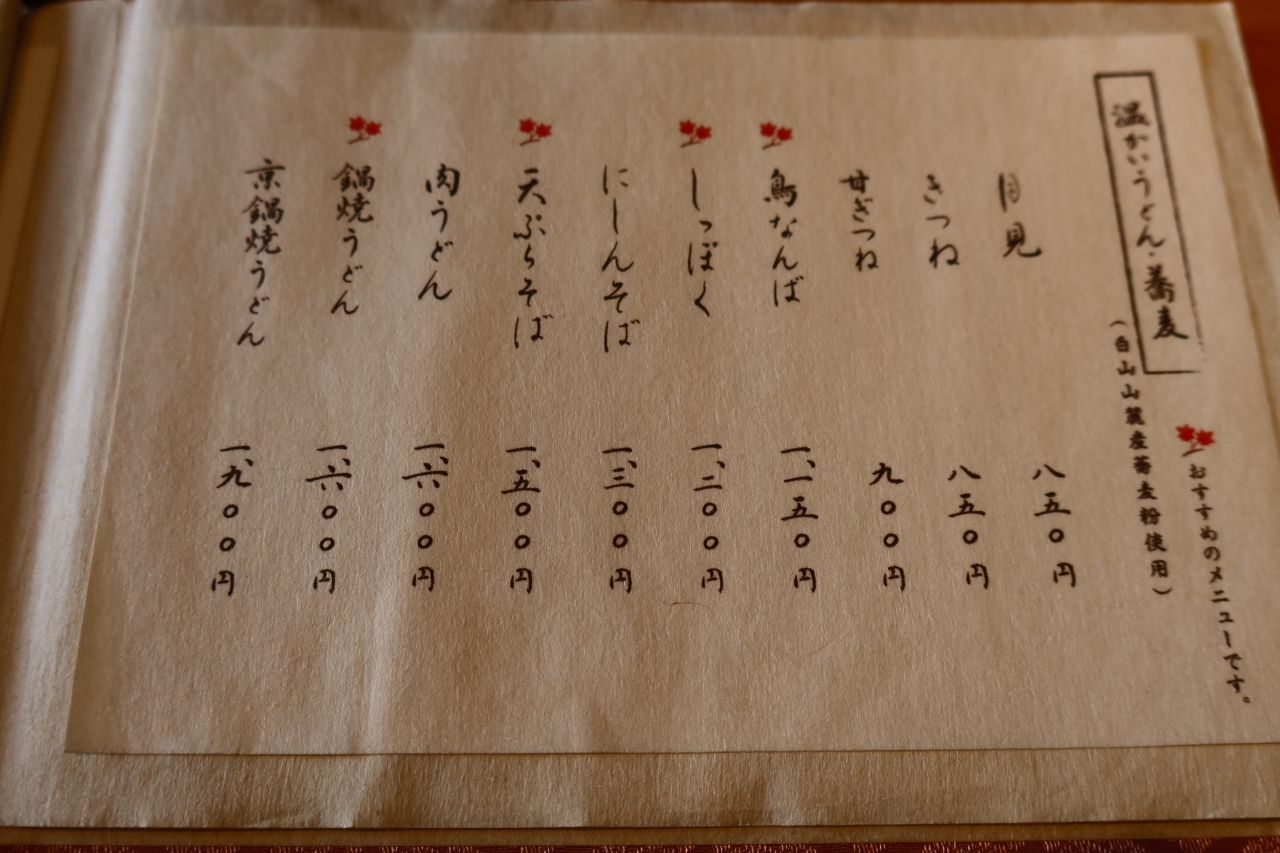 おすすめのメニューです。
温かいうどん・蕎麦
（白山山麓産蕎麦粉使用）
月見 八五〇円
きつね 八五〇円
甘ぎつね 九〇〇円
鳥なんば 一、一五〇円
しっぽく 一、二〇〇円
にしんそば 一、三〇〇円
天ぷらそば 一、五〇〇円
肉うどん 一、六〇〇円
鍋焼うどん 一、六〇〇円
京鍋焼うどん 一、九〇〇円